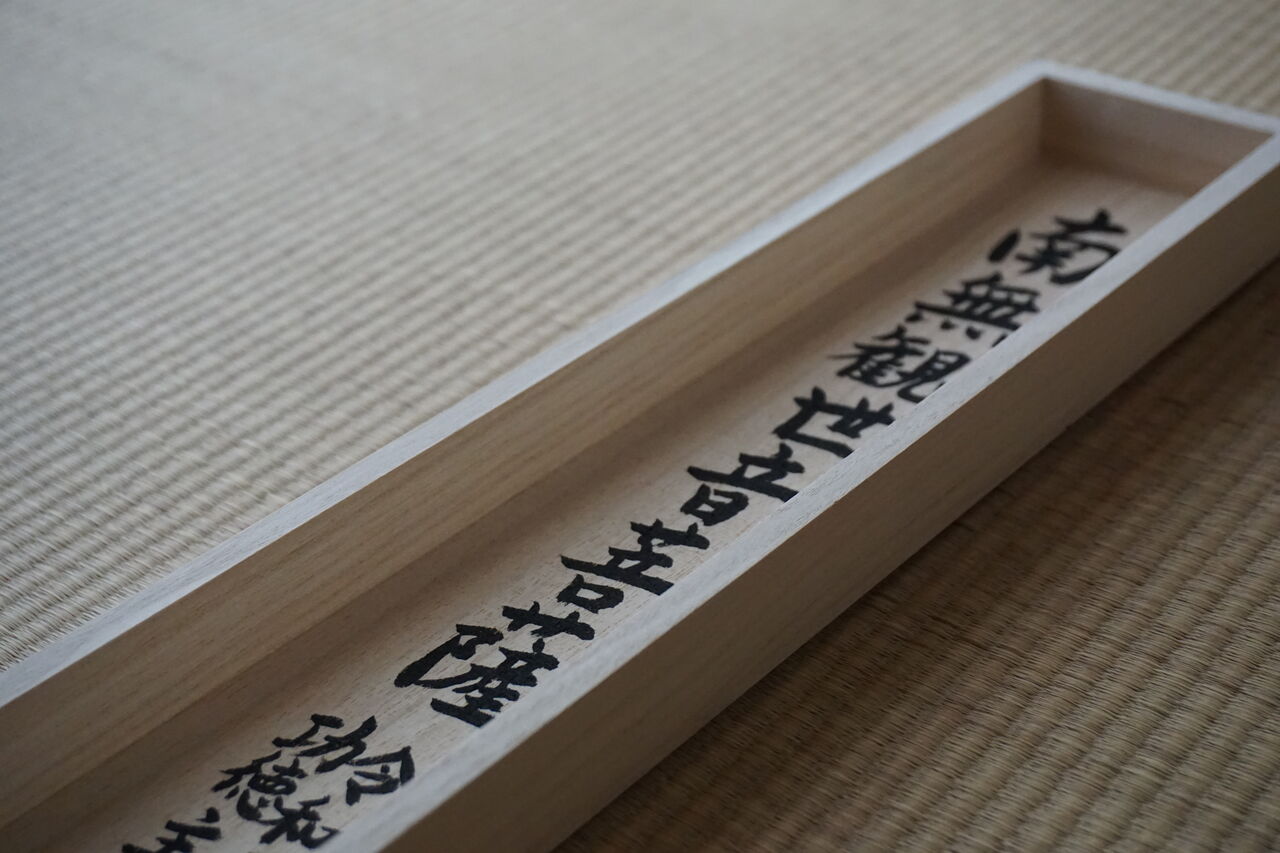 南無観世音菩薩
令和
功徳